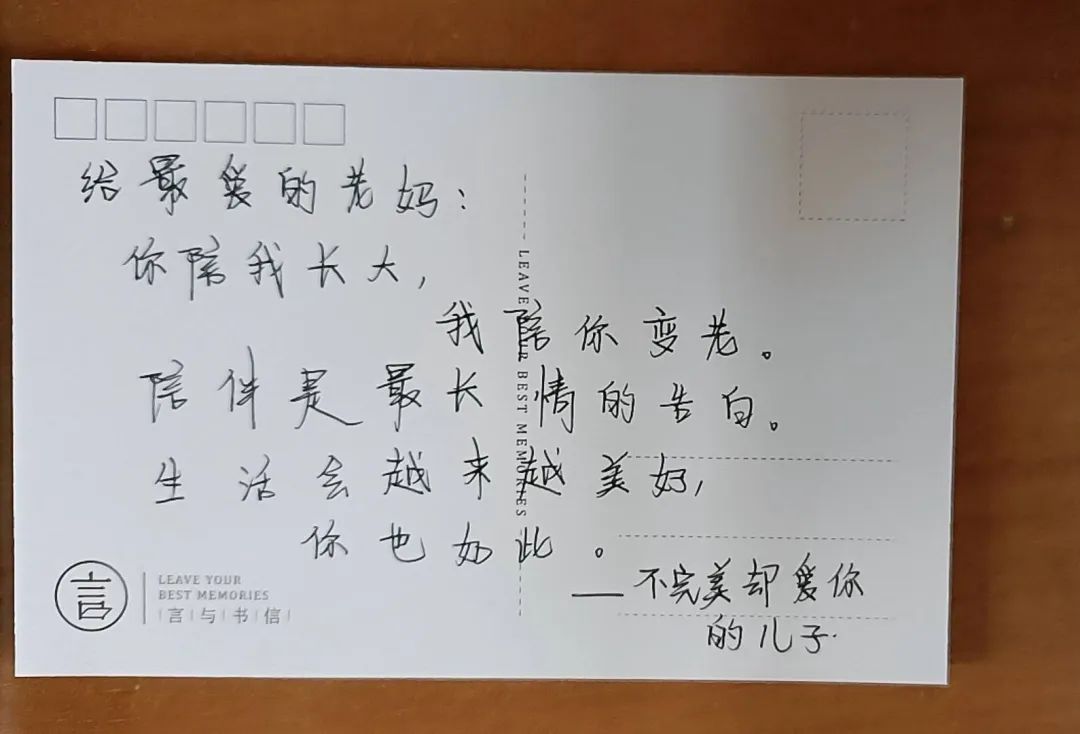 给最爱的老妈：
你陪我长大，
我陪你变老。
陪伴是最长情的告白。
生活会越来越美好，
你也如此。
——不完美却爱你
的儿子.
LEAVE YOUR BEST MEMORIES
言
LEAVE YOUR
BEST MEMORIES
言与书信